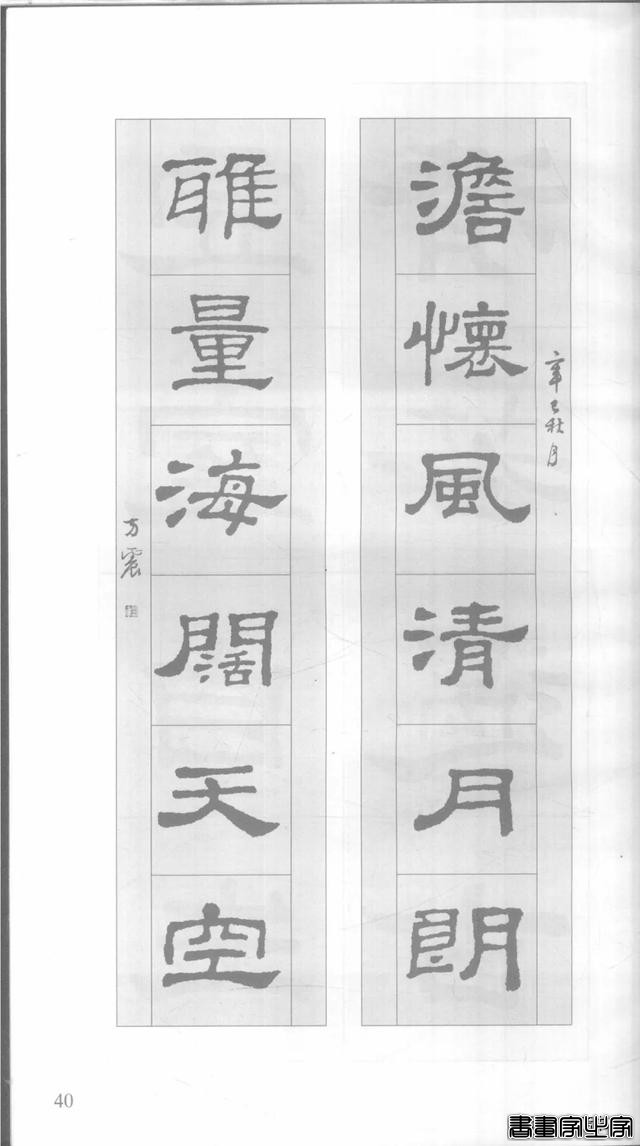 澹懷風清月朗
辛巳秋月
雅量海闊天空
方震
40
書畫家必字